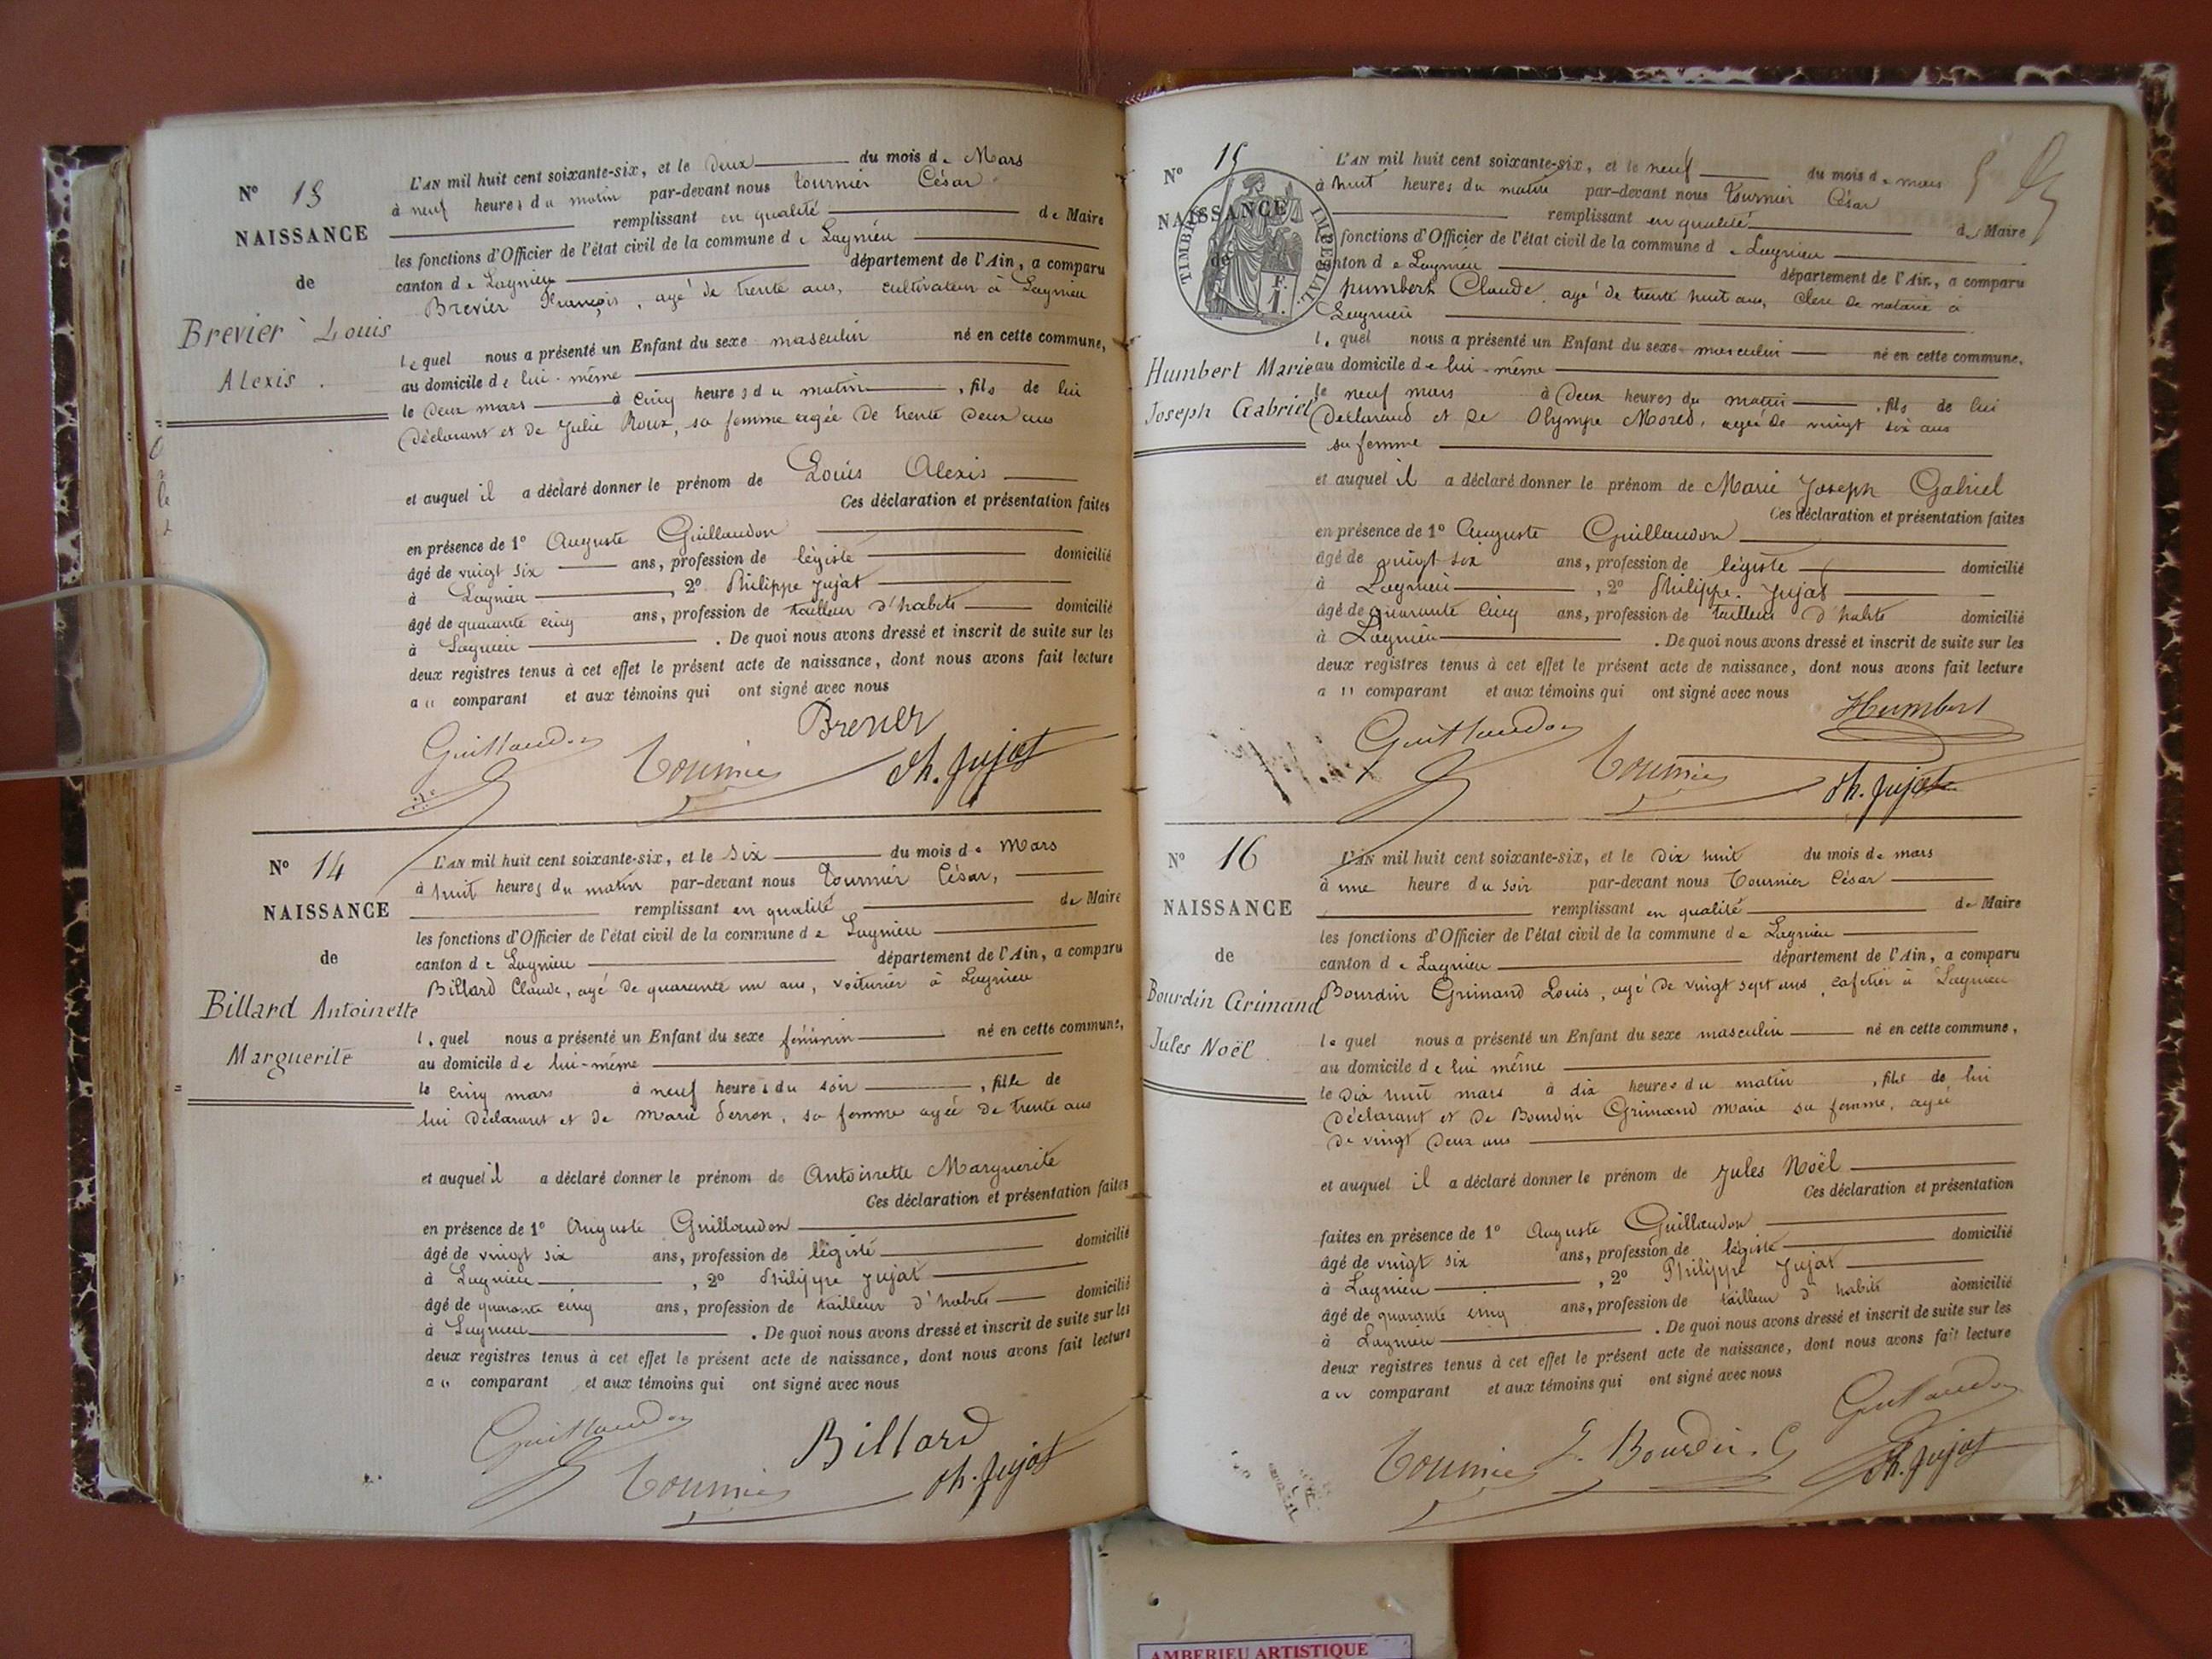 N° 13
NAISSANCE
de
Brevier Louis
Alexis.
L'AN mil huit cent soixante-six, et le deux du mois de Mars
à neuf heures du matin par-devant nous Tournier César
remplissant en qualité de Maire
les fonctions d'Officier de l'état civil de la commune de Lagnieu
canton de Lagnieu département de l'Ain, a comparu
Brevier François, agé de trente ans, cultivateur à Lagnieu
lequel nous a présenté un Enfant du sexe masculin né en cette commune,
au domicile de lui-même
le deux mars à cinq heures du matin, fils de lui
Déclarant et de Julie Roux, sa femme agée de trente deux ans
et auquel il a déclaré donner le prénom de Louis Alexis
Ces déclaration et présentation faites
en présence de 1° Auguste Guillaudon
âgé de vingt six ans, profession de légiste domicilié
à Lagnieu, 2° Philippe Jujat
âgé de quarante cinq ans, profession de tailleur d'habits domicilié
à Lagnieu. De quoi nous avons dressé et inscrit de suite sur les
deux registres tenus à cet effet le présent acte de naissance, dont nous avons fait lecture
au comparant et aux témoins qui ont signé avec nous
Brevier
Guillaudon Tournier Ph. Jujat
N° 14
NAISSANCE
de
Billard Antoinette
Marguerite
L'AN mil huit cent soixante-six, et le six du mois de Mars
à huit heures du matin par-devant nous Tournier César,
remplissant en qualité de Maire
les fonctions d'Officier de l'état civil de la commune de Lagnieu
canton de Lagnieu département de l'Ain, a comparu
Billard Claude, agé de quarante un ans, voiturier à Lagnieu
lequel nous a présenté un Enfant du sexe féminin né en cette commune,
au domicile de lui-même
le cinq mars à neuf heures du soir, fille de
lui Déclarant et de Marie Perron, sa femme agée de trente ans
et auquel il a déclaré donner le prénom de Antoinette Marguerite
Ces déclaration et présentation faites
en présence de 1° Auguste Guillaudon
âgé de vingt six ans, profession de légiste domicilié
à Lagnieu, 2° Philippe Jujat
âgé de quarante cinq ans, profession de tailleur d'habits domicilié
à Lagnieu. De quoi nous avons dressé et inscrit de suite sur les
deux registres tenus à cet effet le présent acte de naissance, dont nous avons fait lecture
au comparant et aux témoins qui ont signé avec nous
Guillaudon Billard
Tournier Ph. Jujat
N° 15
NAISSANCE
de
TIMBRE IMPERIAL
1 F.
Humbert Marie
Joseph Gabriel
L'AN mil huit cent soixante-six, et le neuf du mois de mars
à huit heures du matin par-devant nous Tournier César
remplissant en qualité de Maire
les fonctions d'Officier de l'état civil de la commune de Lagnieu
canton de Lagnieu département de l'Ain, a comparu
humbert Claude, agé de trente huit ans, clerc de notaire à
Lagnieu
lequel nous a présenté un Enfant du sexe masculin né en cette commune,
au domicile de lui-même
le neuf mars à deux heures du matin, fils de lui
Déclarant et de Olympe Morel, agée de vingt six ans
sa femme
et auquel il a déclaré donner le prénom de Marie Joseph Gabriel
Ces déclaration et présentation faites
en présence de 1° Auguste Guillaudon
âgé de vingt-six ans, profession de légiste domicilié
à Lagnieu, 2° Philippe Jujat
âgé de quarante cinq ans, profession de tailleur d'habits domicilié
à Lagnieu. De quoi nous avons dressé et inscrit de suite sur les
deux registres tenus à cet effet le présent acte de naissance, dont nous avons fait lecture
au comparant et aux témoins qui ont signé avec nous
Humbert
Guillaudon Tournier Ph. Jujat
N° 16
NAISSANCE
de
Bourdin Grimand
Jules Noël.
L'AN mil huit cent soixante-six, et le dix huit du mois de mars
à une heure du soir par-devant nous Tournier César
remplissant en qualité de Maire
les fonctions d'Officier de l'état civil de la commune de Lagnieu
canton de Lagnieu département de l'Ain, a comparu
Bourdin Grimand Louis, agé de vingt sept ans, cafetier à Lagnieu
lequel nous a présenté un Enfant du sexe masculin né en cette commune,
au domicile de lui même
le dix huit mars à dix heures du matin, fils de lui
Déclarant et de Bourdin Grimand Marie sa femme, agée
de vingt deux ans
et auquel il a déclaré donner le prénom de Jules Noël
Ces déclaration et présentation
faites en présence de 1° Auguste Guillaudon
âgé de vingt six ans, profession de légiste domicilié
à Lagnieu, 2° Philippe Jujat
âgé de quarante cinq ans, profession de tailleur d'habits domicilié
à Lagnieu. De quoi nous avons dressé et inscrit de suite sur les
deux registres tenus à cet effet le présent acte de naissance, dont nous avons fait lecture
au comparant et aux témoins qui ont signé avec nous
Guillaudon
Tournier L. Bourdin. G Ph. Jujat
AMBERIEU ARTISTIQUE